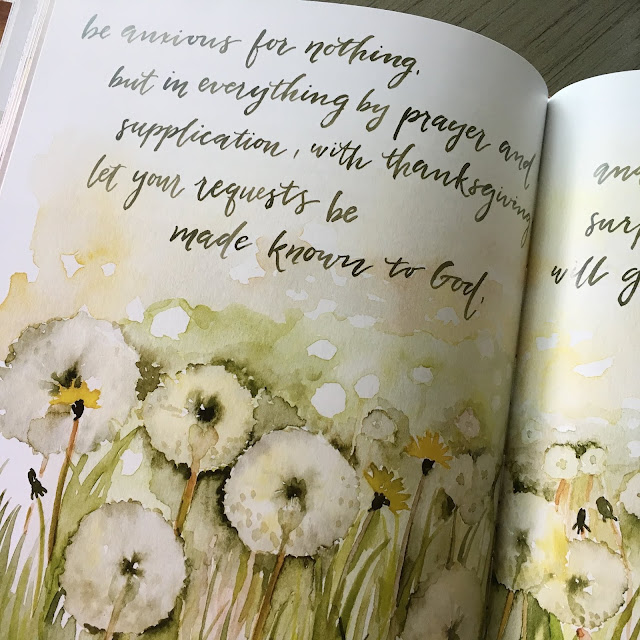 be anxious for nothing,
but in everything by prayer and
supplication, with thanksgiving
let your requests be
made known to God,
and
will